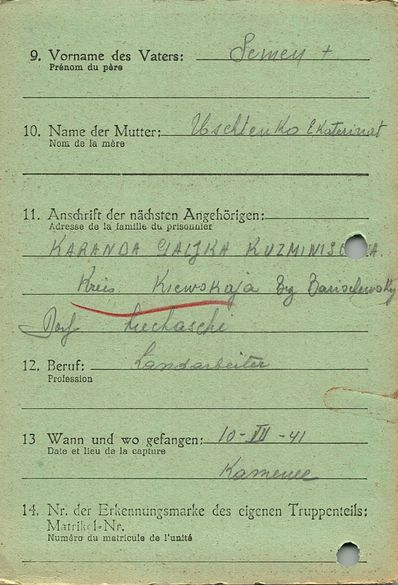 9. Vorname des Vaters: Semen +
Prénom du père
10. Name der Mutter: Uschtenko Ekaterina+
Nom de la mère
11. Anschrift der nächsten Angehörigen:
Adresse de la famille du prisonnier
KARANDA KUZMINISCHNA
Kreis Kiewskaja Bz Barischewsky
Dorf
12. Beruf: Landarbeiter
Profession
13 Wann und wo gefangen: 10-VII-41
Date et lieu de la capture
Kamenec
14. Nr. der Erkennungsmarke des eigenen Truppenteils:
Matrikel-Nr.
Numéro du matricule de l'unité